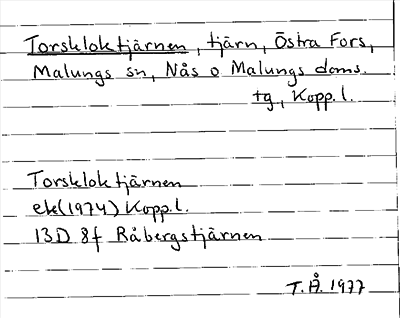 Torskloktjärnen, tjärn, Östra Fors,
Malungs sn, Nås o Malungs doms.
tg, Kopp.l.
Torskloktjärnen
ek(1974) Kopp.l.
13D 8f Råbergstjärnen
T.Å. 1977